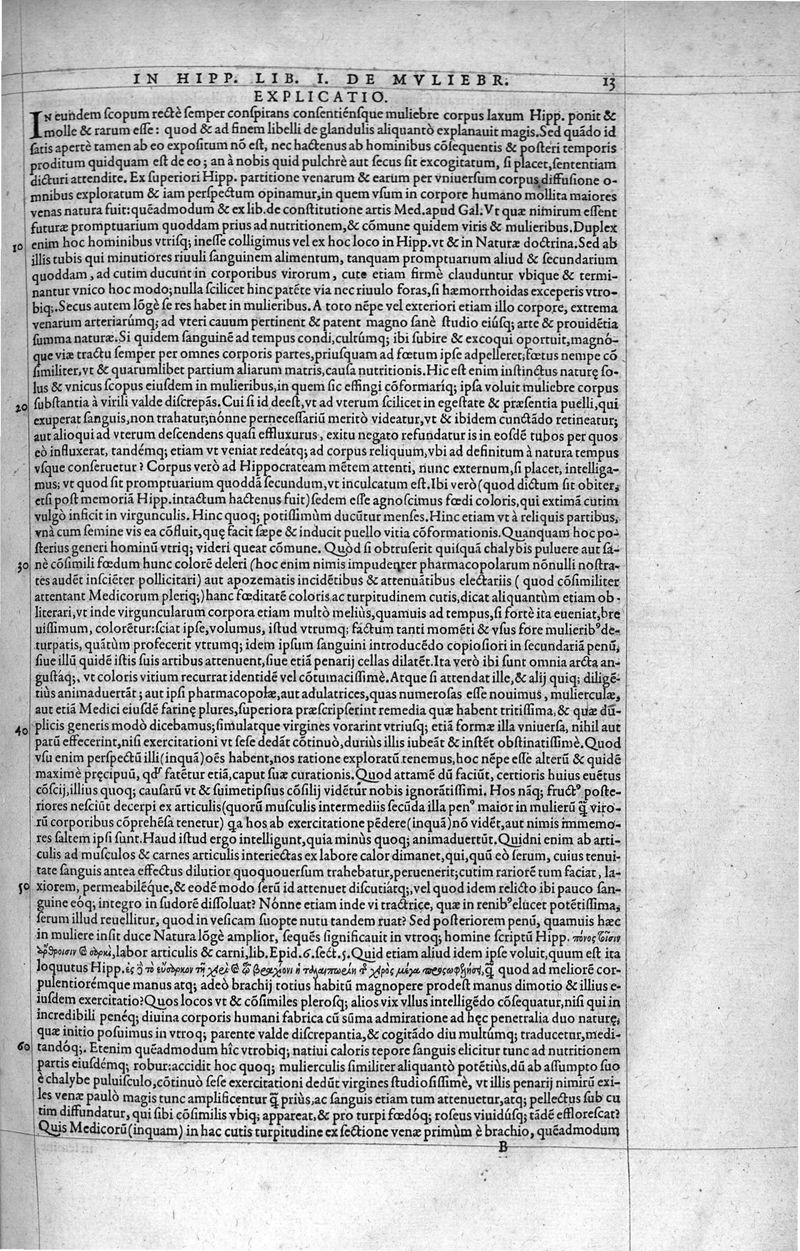 IN HIPP. LIB. I. DE MVLIEBR. 13
EXPLICATIO.
IN eundem scopum rectè semper conspirans consentiénsque muliebre corpus laxum Hipp. ponit &
molle & rarum esse: quod & ad finem libelli de glandulis aliquantò explanauit magis. Sed quãdo id
satis apertè tamen ab eo expositum nõ est, nec hactenus ab hominibus cõsequentis & posteri temporis
proditum quidquam est de eo; an à nobis quid pulchrè aut secus sit excogitatum, si placet, sententiam
dicturi attendite. Ex superiori Hipp. partitione venarum & earum per vniuersum corpus diffusione o-
mnibus exploratum & iam perspectum opinamur, in quem vsum in corpore humano mollita maiores
venas natura fuit: quẽadmodum & ex lib. de constitutione artis Med. apud Gal. Vt quæ nimirum essent
futuræ promptuarium quoddam prius ad nutritionem, & cõmune quidem viris & mulieribus. Duplex
10 enim hoc hominibus vtrisq; inesse colligimus vel ex hoc loco in Hipp. vt & in Naturæ doctrina. Sed ab
illis tubis qui minutiores riuuli sanguinem alimentum, tanquam promptuarium aliud & secundarium
quoddam, ad cutim ducunt in corporibus virorum, cute etiam firmè clauduntur vbique & termi-
nantur vnico hoc modo; nulla scilicet hinc patẽte via nec riuulo foras, si hæmorrhoidas exceperis vtro-
biq;. Secus autem lõgè se res habet in mulieribus. A toto nẽpe vel exteriori etiam illo corpore, extrema
venarum arteriarúmq; ad vteri cauum pertinent & patent magno sanè studio eiúsq; arte & prouidẽtia
summa naturæ. Si quidem sanguinẽ ad tempus condi, cultúmq; ibi subire & excoqui oportuit, magnó-
que viæ tractu semper per omnes corporis partes, priusquam ad fœtum ipse adpelleret; fœtus nempe cõ
similiter, vt & quarumlibet partium aliarum matris, causa nutritionis. Hic est enim instinctus naturę so-
lus & vnicus scopus eiusdem in mulieribus, in quem sic effingi cõformaríq; ipsa voluit muliebre corpus
20 substantia à virili valde discrepãs. Cui si id deest, vt ad vterum scilicet in egestate & præsentia puelli, qui
exuperat sanguis, non trahatur; nónne pernecessariũ meritò videatur, vt & ibidem cunctãdo retineatur;
aut alioqui ad vterum descendens quasi effluxurus, exitu negato refundatur is in eosdẽ tubos per quos
eò influxerat, tandémq; etiam vt veniat redeátq; ad corpus reliquum, vbi ad definitum à natura tempus
vsque conseruetur? Corpus verò ad Hippocrateam mẽtem attenti, nunc externum, si placet, intelliga-
mus; vt quod sit promptuarium quoddã secundum, vt inculcatum est. Ibi verò (quod dictum sit obiter,
etsi post memoriã Hipp. intactum hactenus fuit) sedem esse agnoscimus fœdi coloris, qui extimã cutim
vulgò inficit in virgunculis. Hinc quoq; potissimùm ducũtur menses. Hinc etiam vt à reliquis partibus,
vnà cum semine vis ea cõfluit, quę facit sæpe & inducit puello vitia cõformationis. Quanquam hoc po-
sterius generi hominũ vtriq; videri queat cõmune. Quòd si obtruserit quisquã chalybis puluere aut sa-
30 nè cõsimili fœdum hunc colorẽ deleri (hoc enim nimis impudenter pharmacopolarum nonnulli nostra-
tes audẽt insciẽter pollicitari) aut apozematis incidẽtibus & attenuãtibus electariis (quod cõsimiliter
attentant Medicorum pleriq;) hanc fœditatẽ coloris ac turpitudinem cutis, dicat aliquantùm etiam ob-
literari, vt inde virguncularum corpora etiam multò meliùs, quamuis ad tempus, si fortè ita eueniat, bre
uissimum, colorẽtur: sciat ipse, volumus, istud vtrumq; factum tanti momẽti & vsus fore mulierib⁹ de-
turpatis, quãtùm profecerit vtrumq; idem ipsum sanguini introducẽdo copiosiori in secundariã penũ,
siue illũ quidẽ istis suis artibus attenuent, siue etiã penarij cellas dilatẽt. Ita verò ibi sunt omnia arcta an-
gustáq;, vt coloris vitium recurrat identidẽ vel cõtumacissimè. Atque si attendat ille, & alij quiq; diligẽ-
tiùs animaduertãt; aut ipsi pharmacopolæ, aut adulatrices, quas numerosas esse nouimus, mulierculæ,
aut etiã Medici eiusdẽ farinę plures, superiora præscripserint remedia quæ habent tritissima, & quæ dũ-
40 plicis generis modò dicebamus; simulatque virgines vorarint vtriusq; etiã formæ illa vniuersa, nihil aut
parũ effecerint, nisi exercitationi vt sese dedãt cõtinuò, duriùs illis iubeãt & instẽt obstinatissimè. Quod
vsu enim perspectũ illi (inquã) oẽs habent, nos ratione exploratũ tenemus, hoc nẽpe esse alterũ & quidẽ
maximè pręcipuũ, qd' fatẽtur etiã, caput suæ curationis. Quod attamẽ dũ faciũt, certioris huius euẽtus
cõscij, illius quoq; causarũ vt & suimetipsius cõsilij vidẽtur nobis ignorãtissimi. Hos nãq; fruct⁹ poste-
riores nesciũt decerpi ex articulis (quorũ musculis intermediis secũda illa pen⁹ maior in mulierũ q̃ viro-
rũ corporibus cõprehẽsa tenetur) qa hos ab exercitatione pẽdere (inquã) nõ vidẽt, aut nimis immemo-
res saltem ipsi sunt. Haud istud ergo intelligunt, quia minùs quoq; animaduertũt. Quidni enim ab arti-
culis ad musculos & carnes articulis interiectas ex labore calor dimanet, qui, quũ eò serum, cuius tenui-
tate sanguis antea effectus dilutior quoquouersum trahebatur, peruenerit; cutim rariorẽ tum faciat, la-
50 xiorem, permeabiléque, & eodẽ modo serũ id attenuet discutiátq;, vel quod idem relicto ibi pauco san-
guine eóq; integro in sudorẽ dissoluat? Nónne etiam inde vi tractriçe, quæ in renib⁹ elucet potẽtissima,
serum illud reuellitur, quod in vesicam suopte nutu tandem ruat? Sed posteriorem penũ, quamuis hæc
in muliere insit duce Natura lõgè amplior, sequẽs significauit in vtroq; homine scriptũ Hipp. πόνος τοῖσιν
ἄρθροισιν ϗ σαρκὶ, labor articulis & carni, lib. Epid. 6. sect. 5. Quid etiam aliud idem ipse voluit, quum est ita
loquutus Hipp. q̃ quod ad meliorẽ cor-
pulentiorémque manus atq; adeò brachij totius habitũ magnopere prodest manus dimotio & illius e-
iusdem exercitatio? Quos locos vt & cõsimiles plerosq; alios vix vllus intelligẽdo cõsequatur, nisi qui in
incredibili penéq; diuina corporis humani fabrica cũ sũma admiratione ad hęc penetralia duo naturę,
quæ initio posuimus in vtroq; parente valde discrepantia, & cogitãdo diu multúmq; traducetur, medi-
60 tandóq;. Etenim quẽadmodum hîc vtrobiq; natiui caloris tepore sanguis elicitur tunc ad nutritionem
partis eiusdémq; robur: accidit hoc quoq; mulierculis similiter aliquantò potẽtiùs, dũ ab assumpto suo
è chalybe puluisculo, cõtinuò sese exercitationi dedũt virgines studiosissimè, vt illis penarij nimirũ exi-
les venæ paulò magis tunc amplificentur q̃ priùs, ac sanguis etiam tum attenuetur, atq; pellectus sub cu
tim diffundatur, qui sibi cõsimilis vbiq; appareat, & pro turpi fœdóq; roseus viuidúsq; tãdẽ efflorescat?
Quis Medicorũ (inquam) in hac cutis turpitudine ex sectione venæ primùm è brachio, quẽadmodum
B